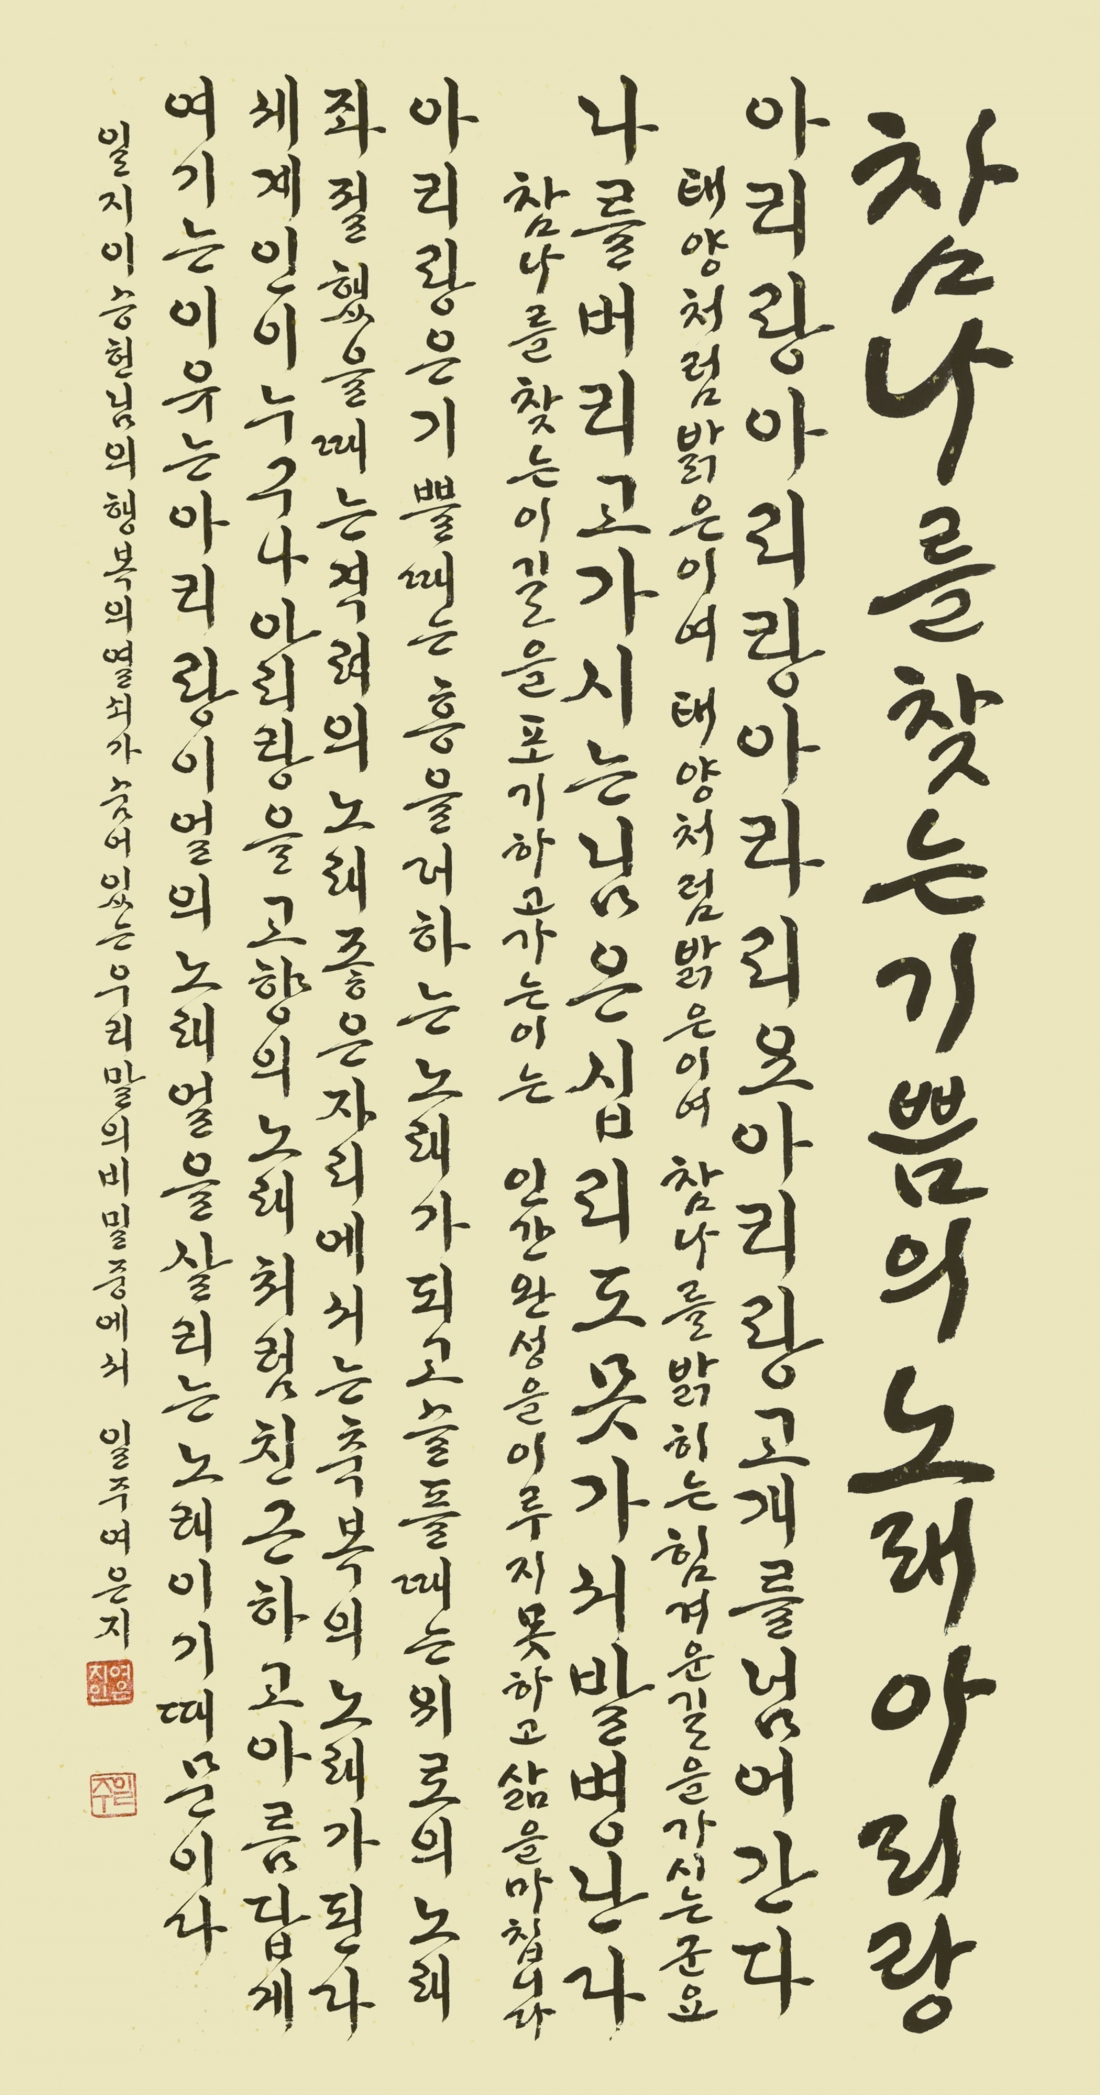 참나를찾는기쁨의노래아리랑
아리랑아리랑아라리요아리랑고개를넘어간다
태양처럼밝은이여 태양처럼밝은이여 참나를밝히는힘겨운길을가시는군요
나를버리고가시는님은십리도못가서발병난다
참나를찾는이길을포기하고가는이는 인간완성을이루지못하고삶을마칩니다
아리랑은기쁠때는흥을더하는노래가되고슬플때는위로의노래
좌절했을때는격려의노래좋은자리에서는축복의노래가된다
세계인이누구나아리랑을고향의노래처럼친근하고아름답게
여기는이유는아리랑이얼의노래얼을살리는노래이기때문이다
일지이승헌님의행복의열쇠가숨어있는우리말의비밀중에서 일주여은지
여은지인
일주